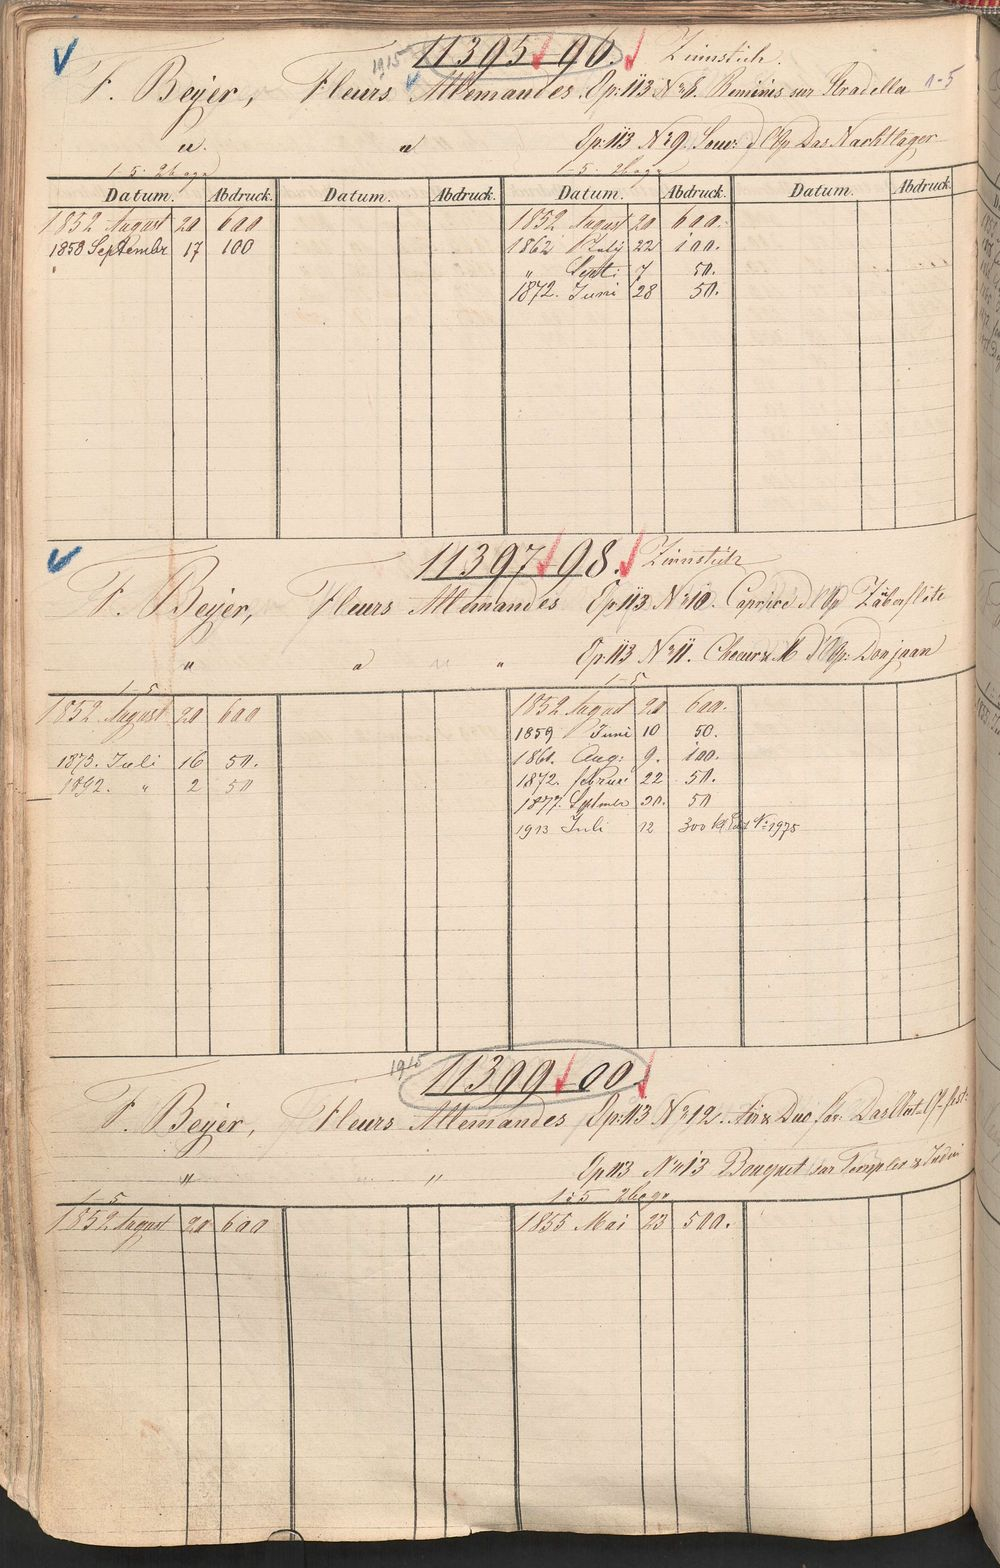 1915 11395 96. Zinnstich.
F. Beyer, Fleurs Allemandes. Op: 113 No 8. Reminis sur Stradella 1-5
" " Op: 113 No 9. Souv: d'Op Das Nachtlager
1-5. 2 1-5.
Datum. Abdruck. Datum. Abdruck. Datum. Abdruck. Datum. Abdruck.
1852 August 20 600 1852 August 20 600.
1858 September 17 100 1862 Juli 22 100.
" " Sept. 7 50.
1872. Juni 28 50.
11397 98. Zinnstich
F. Beyer, Fleurs Allemandes Op: 113 No 10. Caprice d'Op Zauberflöte
" " " " Op: 113 No 11. d'Op: Don juan
1-5 1-5
1852 August 20 600 1852 August 20 600.
1859 Juni 10 50.
1873. Juli 16 50. 1861. Aug: 9. 100.
1892. " 2 50 1872. Februar 22 50.
1877. September 20. 50
1913 Juli 12 300 No 1975
1915 11399 00.
F. Beyer, Fleurs Allemandes Op: 113 No 12. Air & Duo
" " Op 113 No 13 Bouquet sur Templer & Judin
1-5 1-5
1852 August 20 600 1855 Mai 23 500.